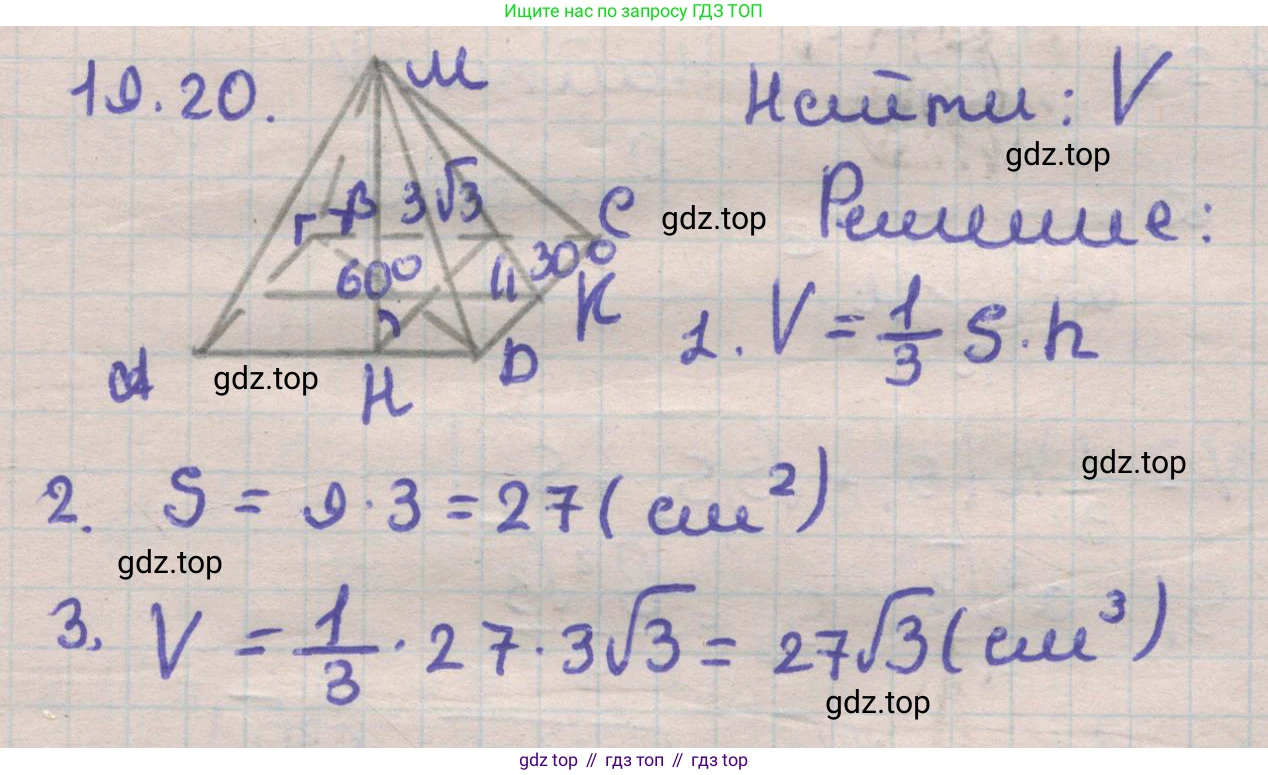 Ищите нас по запросу ГДЗ ТОП
19.20.
M
Найти: V
gdz.top
B 3√3
C
gdz.top
Решение:
60°
30°
K
1. V = 1/3 S · h
A
gdz.top
H
D
gdz.top
2. S = 9 · 3 = 27 (см²)
gdz.top
3. V = 1/3 · 27 · 3√3 = 27√3 (см³)
gdz.top
gdz top // гдз топ // gdz top